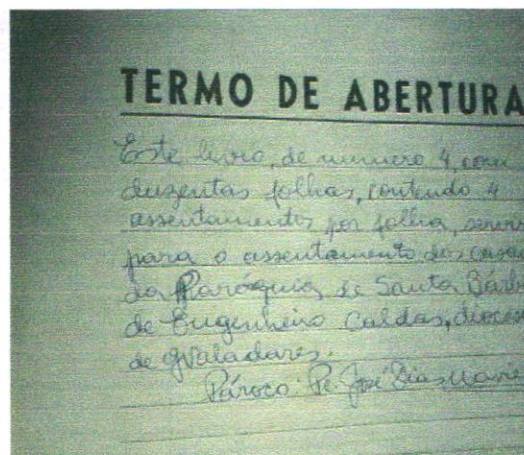 TERMO DE ABERTURA
Este livro, de numero 4, com
duzentas folhas, contendo 4
assentamentos por folha, servir
para o assentamento dos casam
da Paróquia de Santa Bárb
de Engenheiro Caldas, dioces
de GValadares.
Pároco: Pe. José Dias